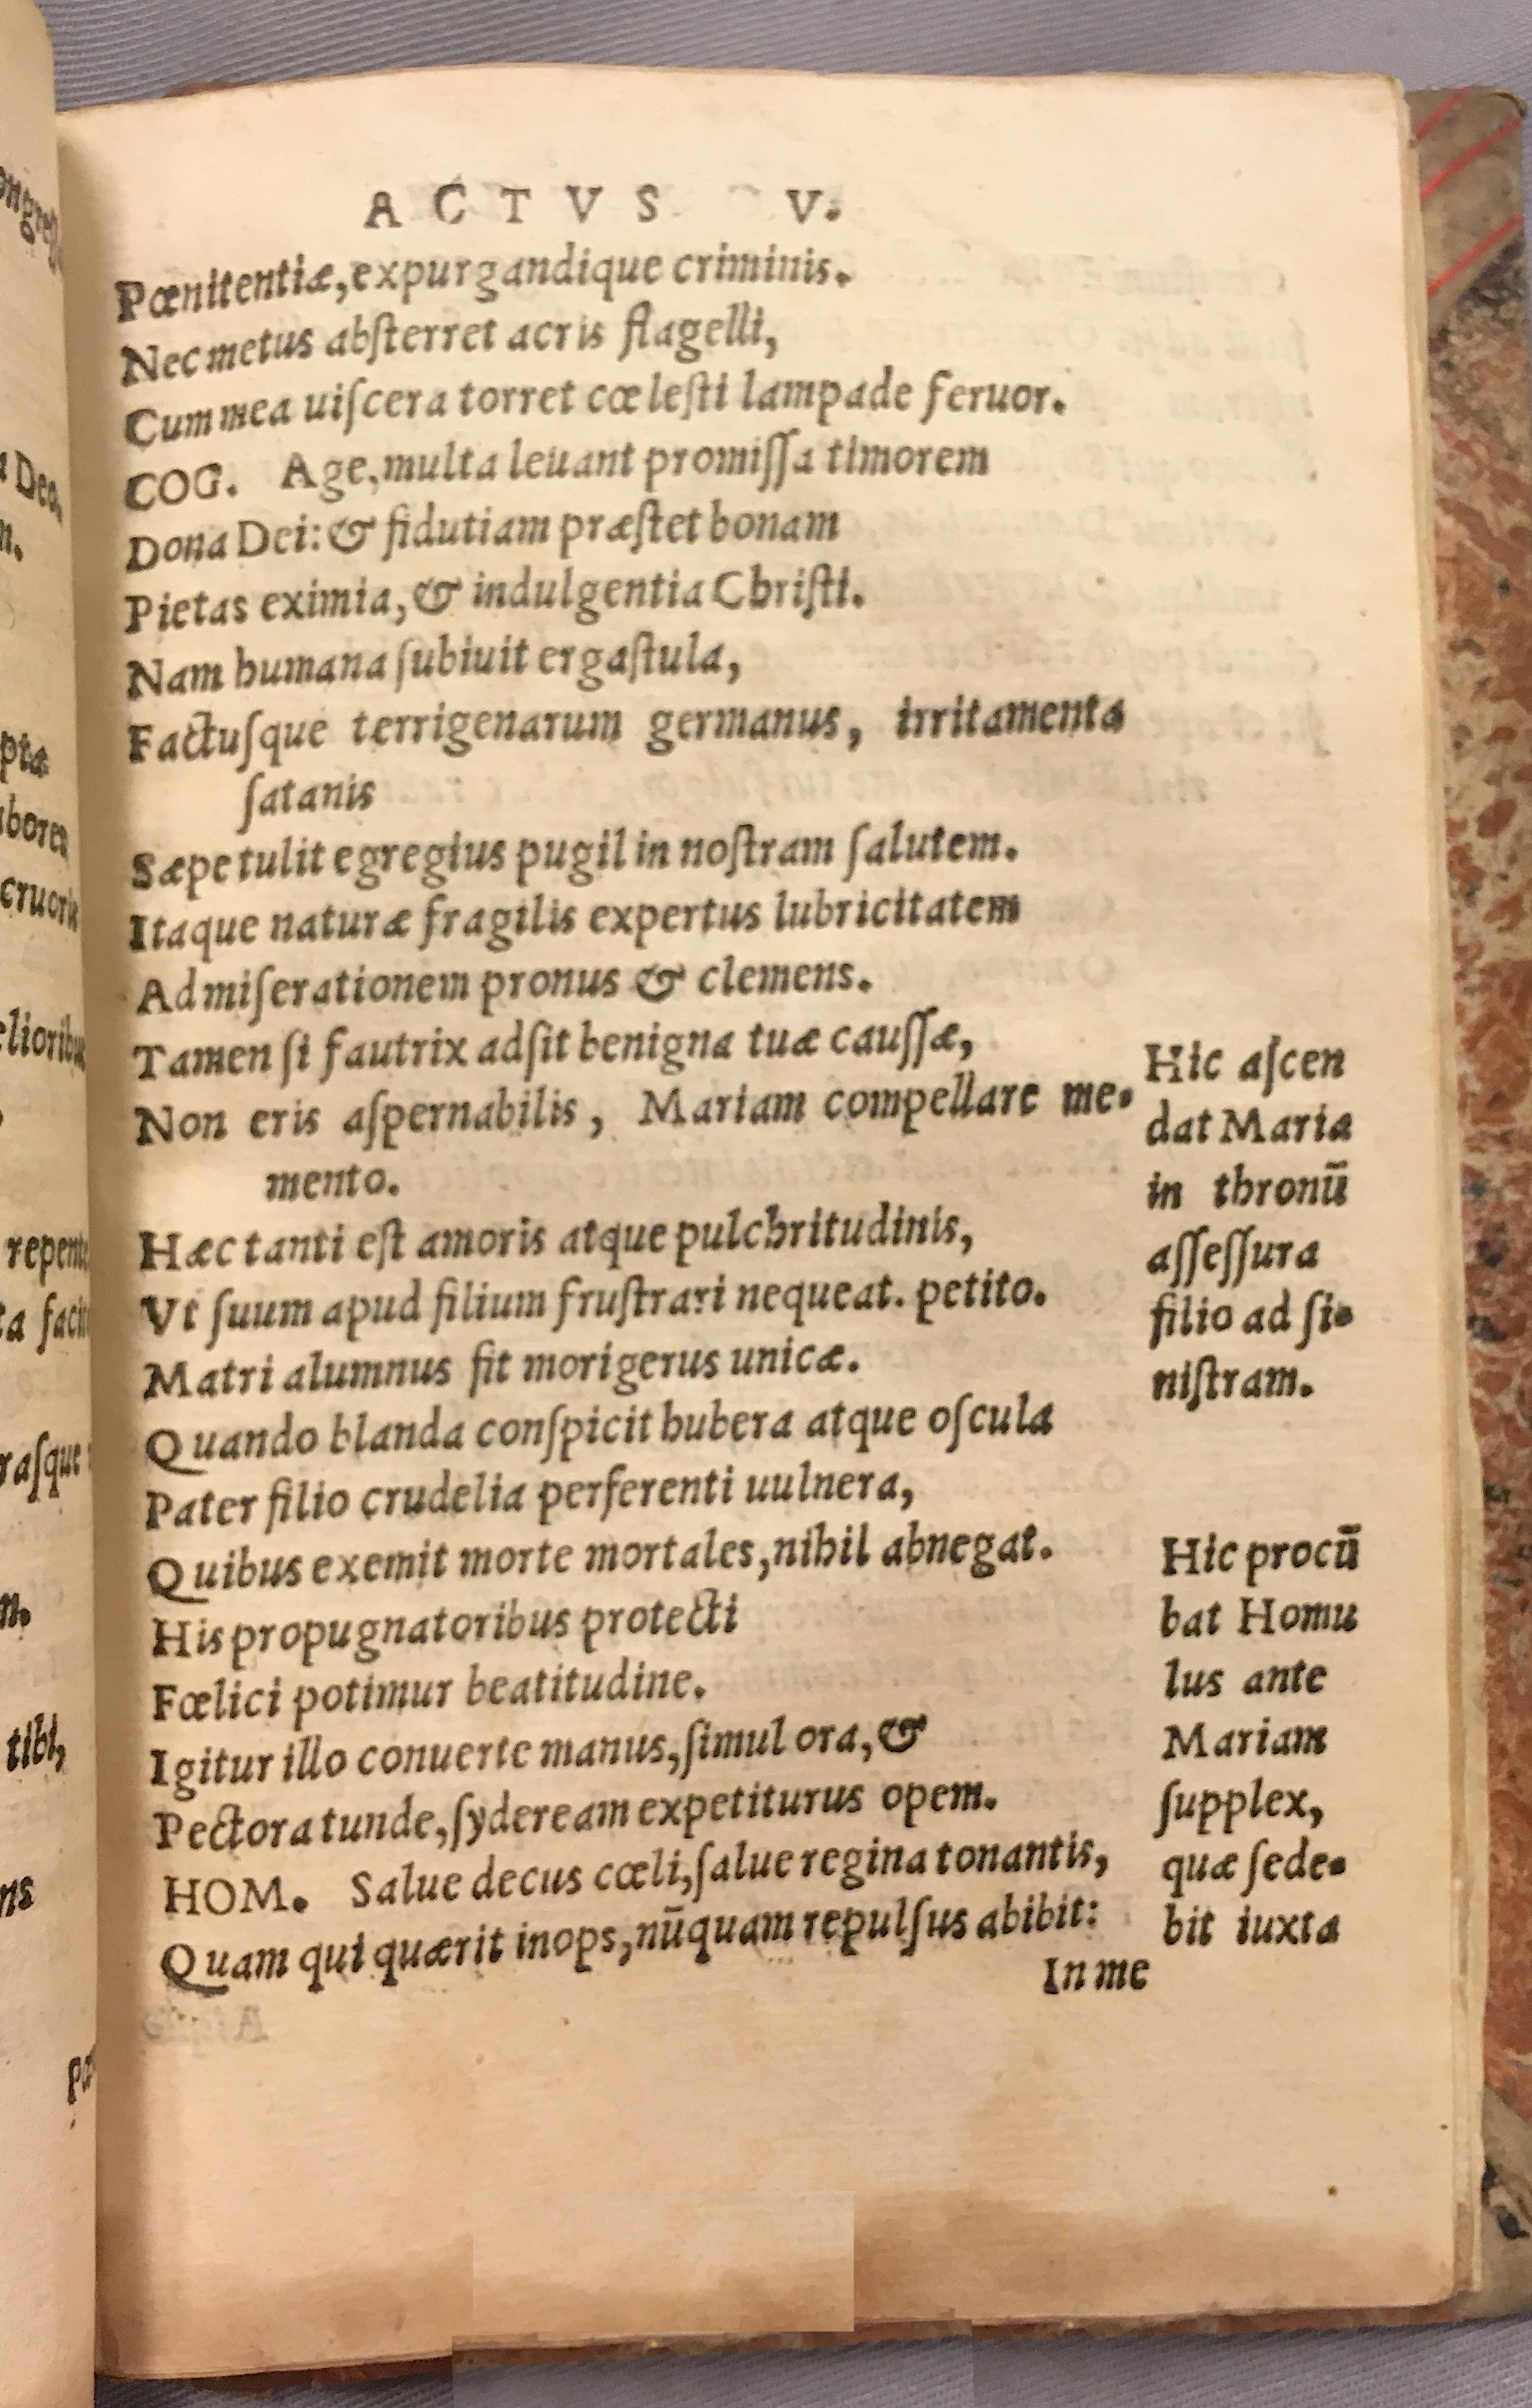 ACTVS V.
Pœnitentiæ, expurgandique criminis.
Nec metus abſterret acris flagelli,
Cum mea uiſcera torret cœleſti lampade feruor.
COG. Age, multa leuant promiſſa timorem
Dona Dei: & fidutiam præſtet bonam
Pietas eximia, & indulgentia Chriſti.
Nam humana ſubiuit ergaſtula,
Factuſque terrigenarum germanus, irritamenta
ſatanis
Sæpe tulit egregius pugil in noſtram ſalutem.
Itaque naturæ fragilis expertus lubricitatem
Ad miſerationem pronus & clemens.
Tamen ſi fautrix adſit benigna tuæ cauſſæ,
Non eris aſpernabilis, Mariam compellare me-
mento.
Hæc tanti eſt amoris atque pulchritudinis,
Vt ſuum apud filium fruſtrari nequeat. petito.
Matri alumnus fit morigerus unicæ.
Quando blanda conſpicit hubera atque oſcula
Pater filio crudelia perferenti uulnera,
Quibus exemit morte mortales, nihil abnegat.
His propugnatoribus protecti
Fœlici potimur beatitudine.
Igitur illo conuerte manus, ſimul ora, &
Pectora tunde, ſydeream expetiturus opem.
HOM. Salue decus cœli, ſalue regina tonantis,
Quam qui quærit inops, nūquam repulſus abibit:
In me
Hic aſcen
dat Maria
in thronū
aſſeſſura
filio ad ſi-
niſtram.
Hic procū
bat Homu
lus ante
Mariam
ſupplex,
quæ ſede-
bit iuxta